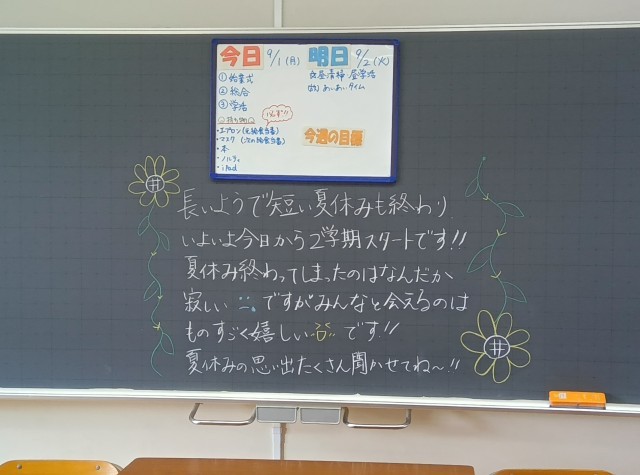 今日 9/1(月) 明日 9/2(火)
①始業式
②総合
③学活
・エプロン(元給食当番)
・マスク(次の給食当番)
・本
・ノルティ
・iPad
今週の目標
長いようで短い夏休みも終わり
いよいよ今日から2学期スタートです!!
夏休み終わってしまったのはなんだか
寂しいですがみんなと会えるのは
ものすごく嬉しいです!!
夏休みの思い出たくさん聞かせてね〜!!